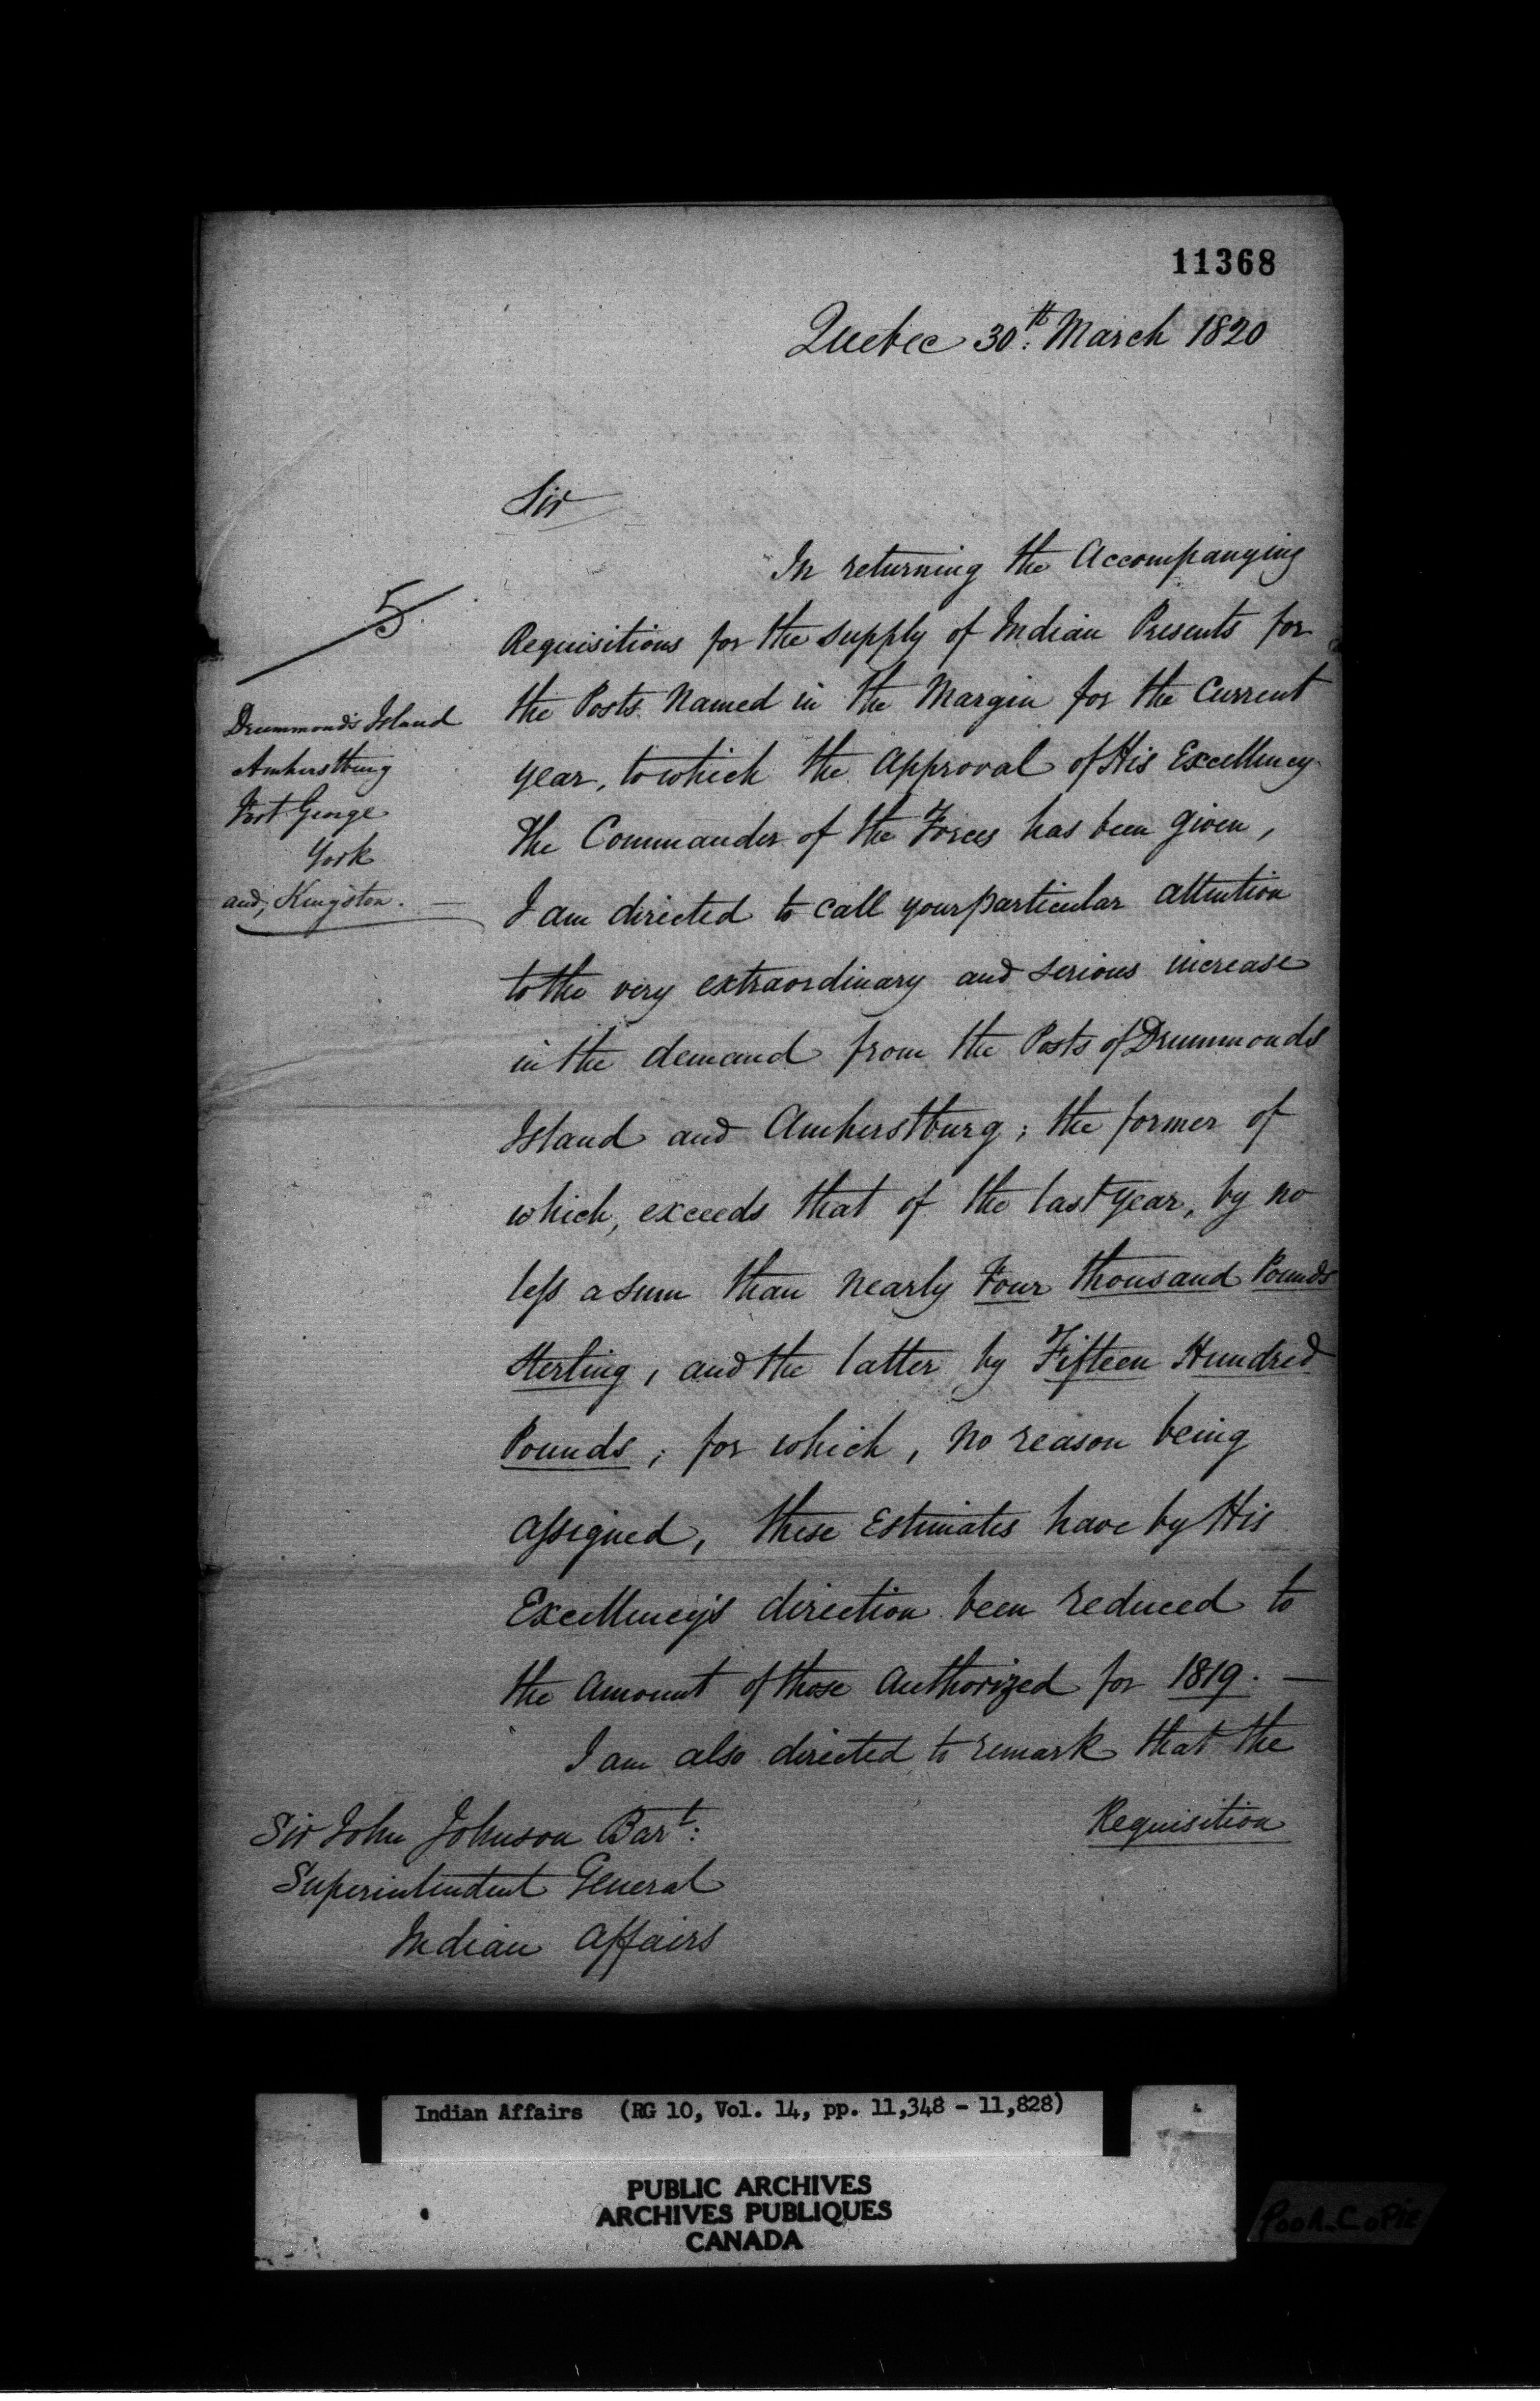 11368
Quebec 30th: March 1820
Sir
In returning the Accompanying
Requisitions for the supply of Indian Presents for
the Posts Named in the Margin for the Current
year, to which the Approval of His Excellency
the Commander of the Forces has been given,
I am directed to call your particular attention
to the very extraordinary and serious increase
in the demand from the Posts of Drummonds
Island and Amherstburg; the former of
which, exceeds that of the last year, by no
less a sum than nearly Four thousand Pounds
Sterling, and the latter by Fifteen Hundred
Pounds; for which, no reason being
assigned, these Estimates have by His
Excellency's direction been reduced to
the Amount of those Authorized for 1819. —
I am also directed to remark that the
Requisition
5.
Drummond's Island
Amherstburg
Fort George
York
and, Kingston. —
Sir John Johnson Bart:
Superintendent General
Indian Affairs
Indian Affairs (RG 10, Vol. 14, pp. 11,348 - 11,828)
PUBLIC ARCHIVES
ARCHIVES PUBLIQUES
CANADA
POOR COPIE